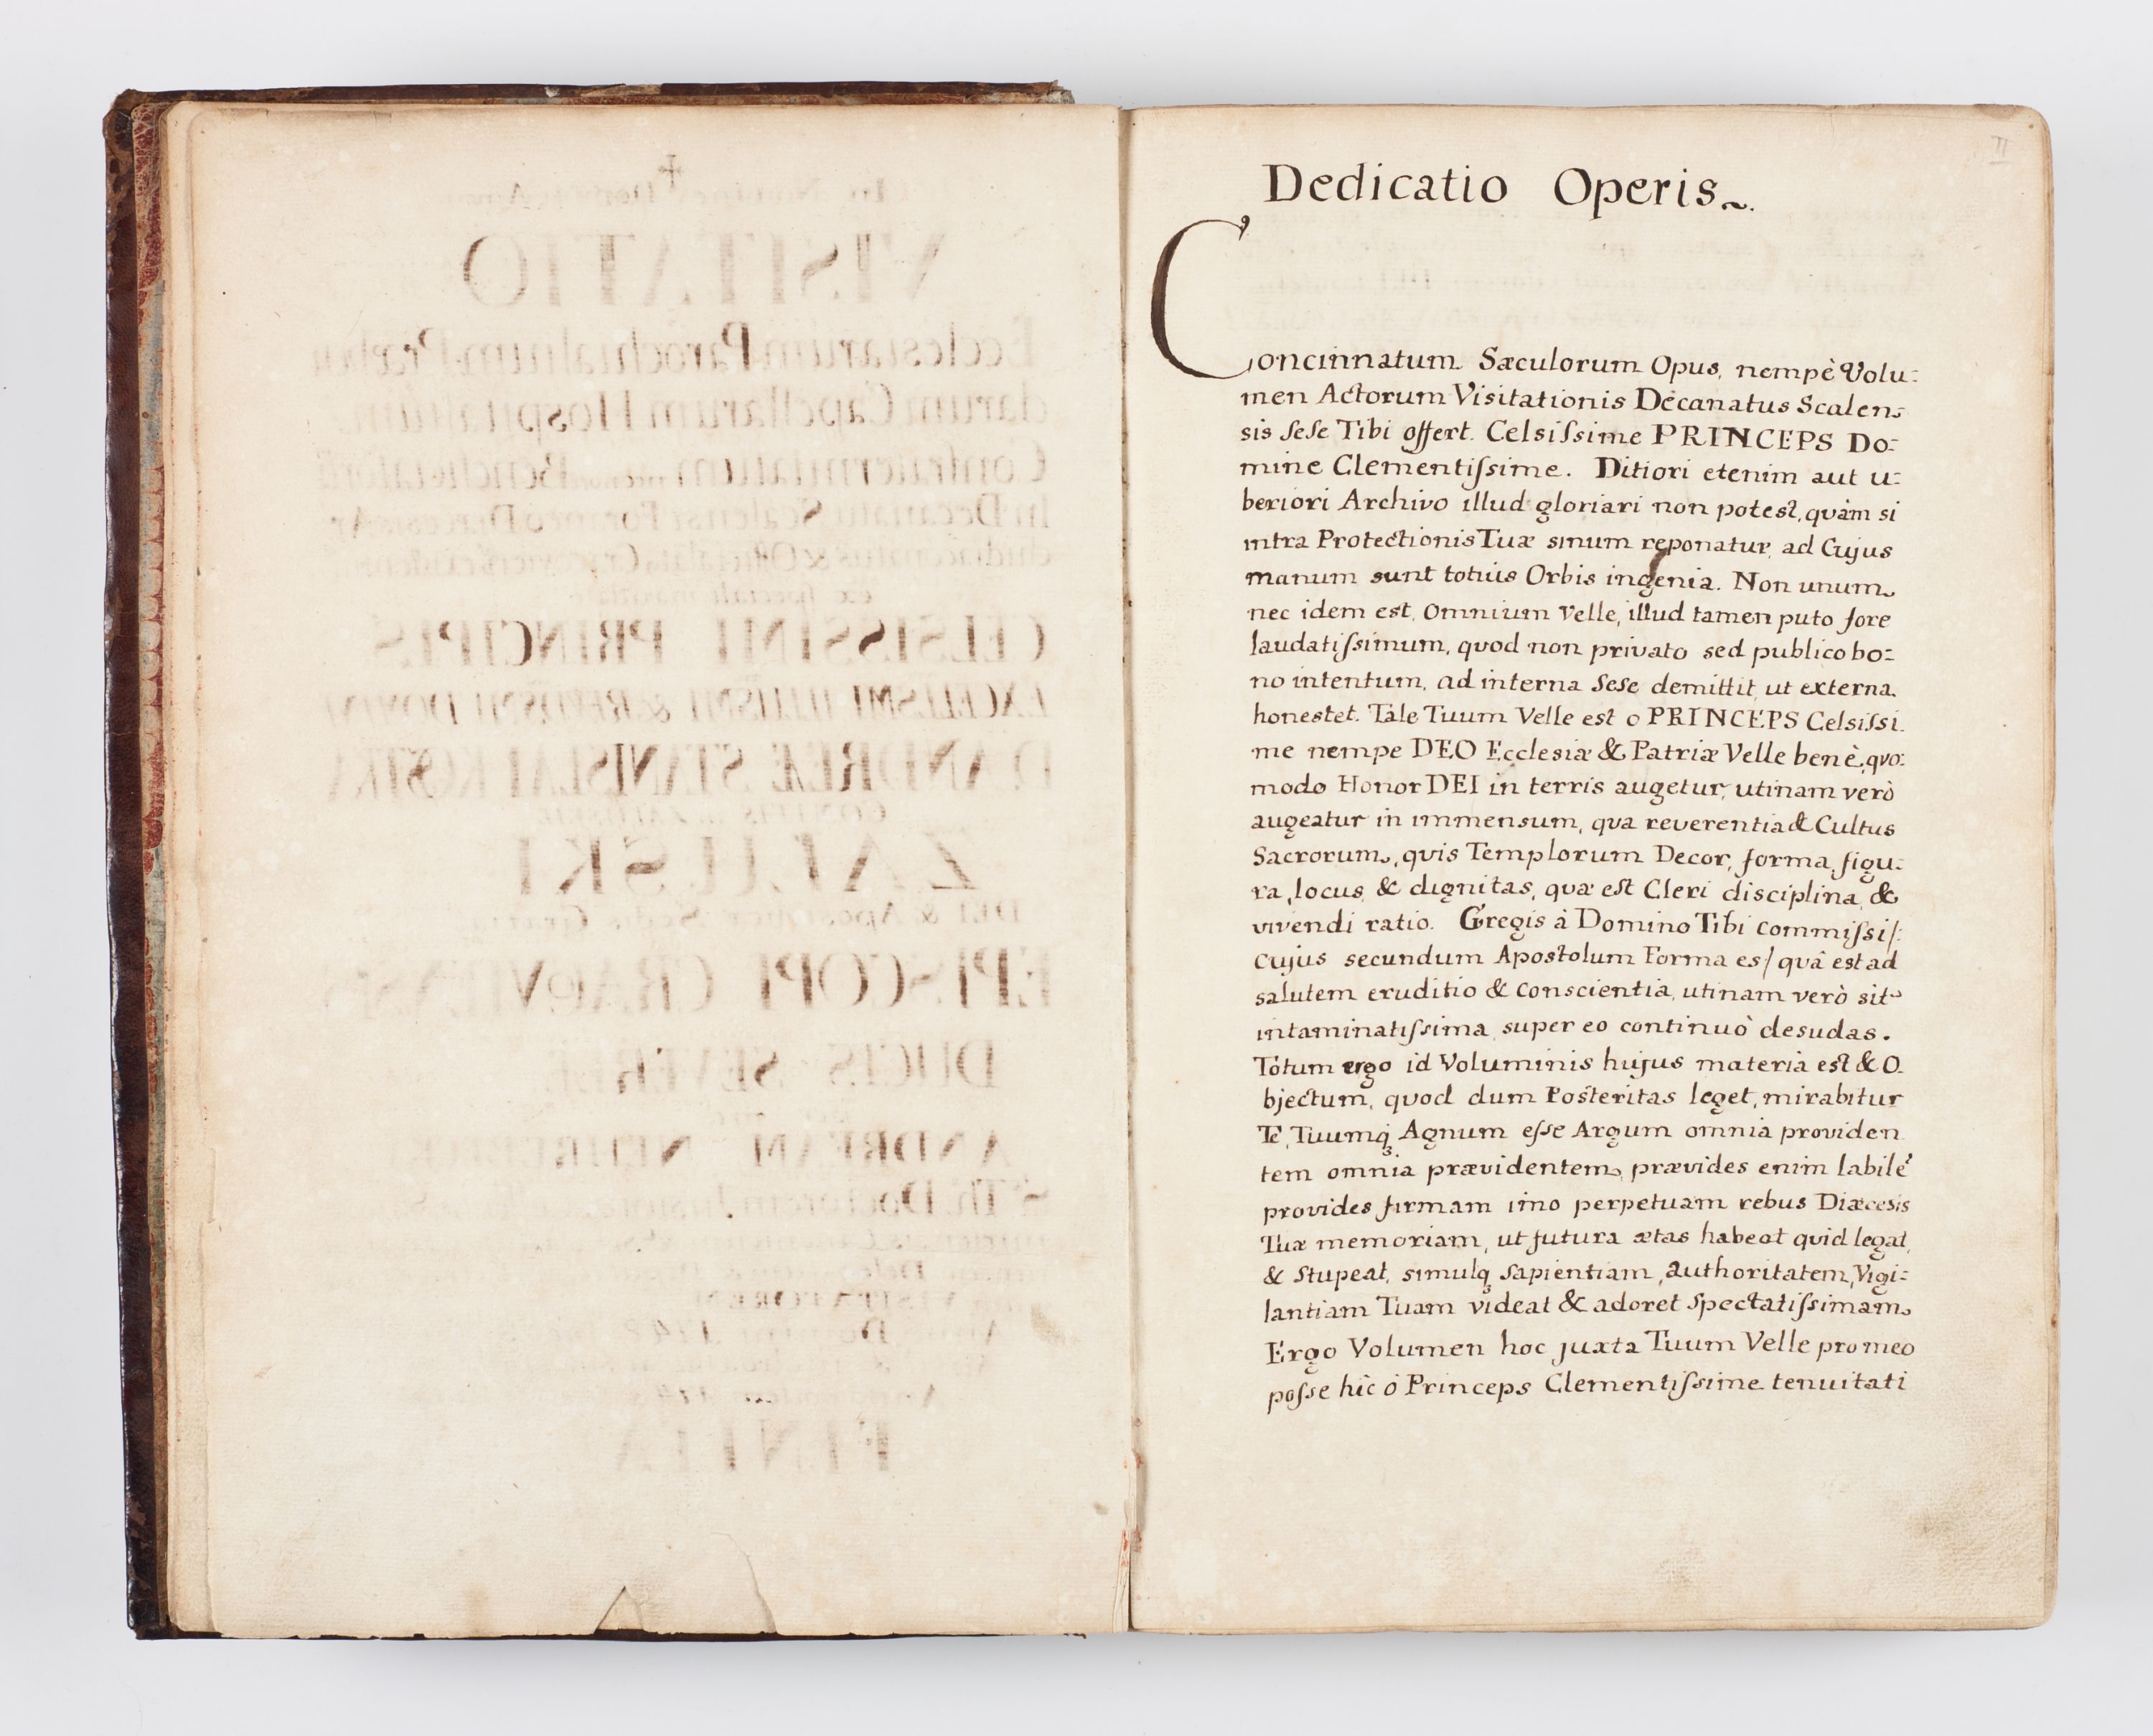 VISITATIO
Ecclesiarum Parochialium Præben
darum Capellarum Hospitalium
Confraternitatum
In Decanatu Scalensi
CELSISSIMI PRINCIPIS
D. ANDREÆ STANISLAI KOSTKA
ZAŁUSKI
DEI & Apostolicæ Sedis Gratia
EPISCOPI CRACOVIENSIS
DUCIS SEVERIÆ
ANDREAM
S. Th. Doctorem
VISITATOREM
FINITA
II
Dedicatio Operis
Concinnatum Sæculorum Opus, nempè Volu=
men Actorum Visitationis Decanatus Scalen
sis sese Tibi offert. Celsiſsime PRINCEPS Do=
mine Clementiſsime. Ditiori etenim aut u=
beriori Archivo illud gloriari non potest, quàm si
intra Protectionis Tuæ sinum reponatur, ad Cujus
manum sunt totius Orbis ingenia. Non unum
nec idem est, omnium Velle, illud tamen puto fore
laudatiſsimum, quod non privato sed publico bo=
no intentum, ad interna sese demittit, ut externa
honestet. Tale Tuum Velle est o PRINCEPS Celsiſsi
me nempe DEO Ecclesiæ & Patriæ Velle benè, quo:
modo Honor DEI in terris augetur, utinam verò
augeatur in immensum, qua reverentia & Cultus
Sacrorum, quis Templorum Decor, forma, figu:
ra, locus, & dignitas, quæ est Cleri disciplina, &
vivendi ratio. Gregis à Domino Tibi commiſsi /:
Cujus secundum Apostolum Forma es/ quâ est ad
salutem eruditio & conscientia, utinam verò sit
intaminatiſsima, super eo continuò desudas.
Totum ergo id Voluminis hujus materia est & O
bjectum, quod dum Posteritas leget, mirabitur
Te, Tuumq; Agnum eſse Argum omnia providen
tem omnia prævidentem, prævides enim labile
provides firmam imo perpetuam rebus Diæcesis
Tuæ memoriam, ut futura ætas habeat quid legat,
& stupeat, simulq; sapientiam, authoritatem, Vigi=
lantiam Tuam videat & adoret spectatiſsimam
Ergo Volumen hoc juxta Tuum Velle pro meo
poſse hîc ó Princeps Clementiſsime tenuitati